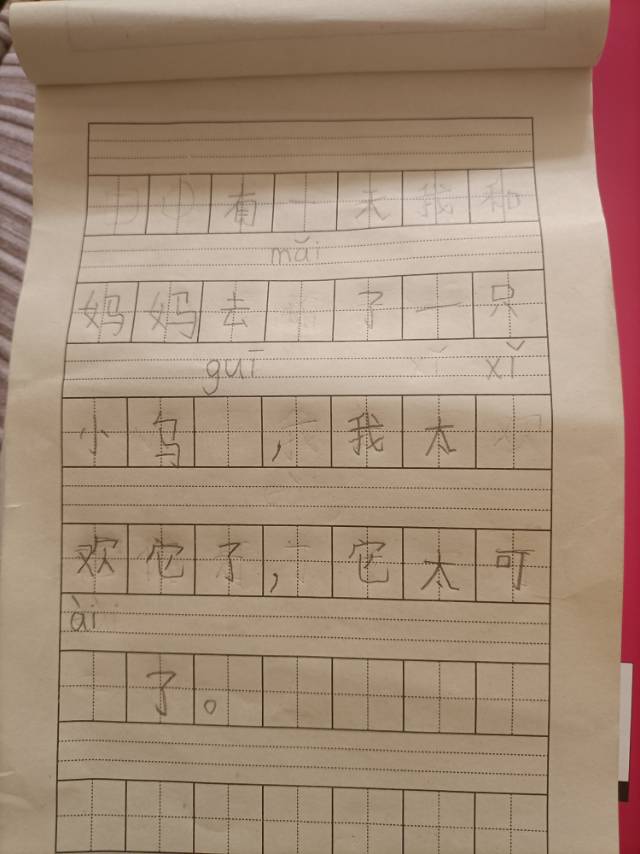 有一天我和
mǎi
妈妈去 了一只
guī xǐ
小乌 ，我太
欢它了，它太可
ài
了。